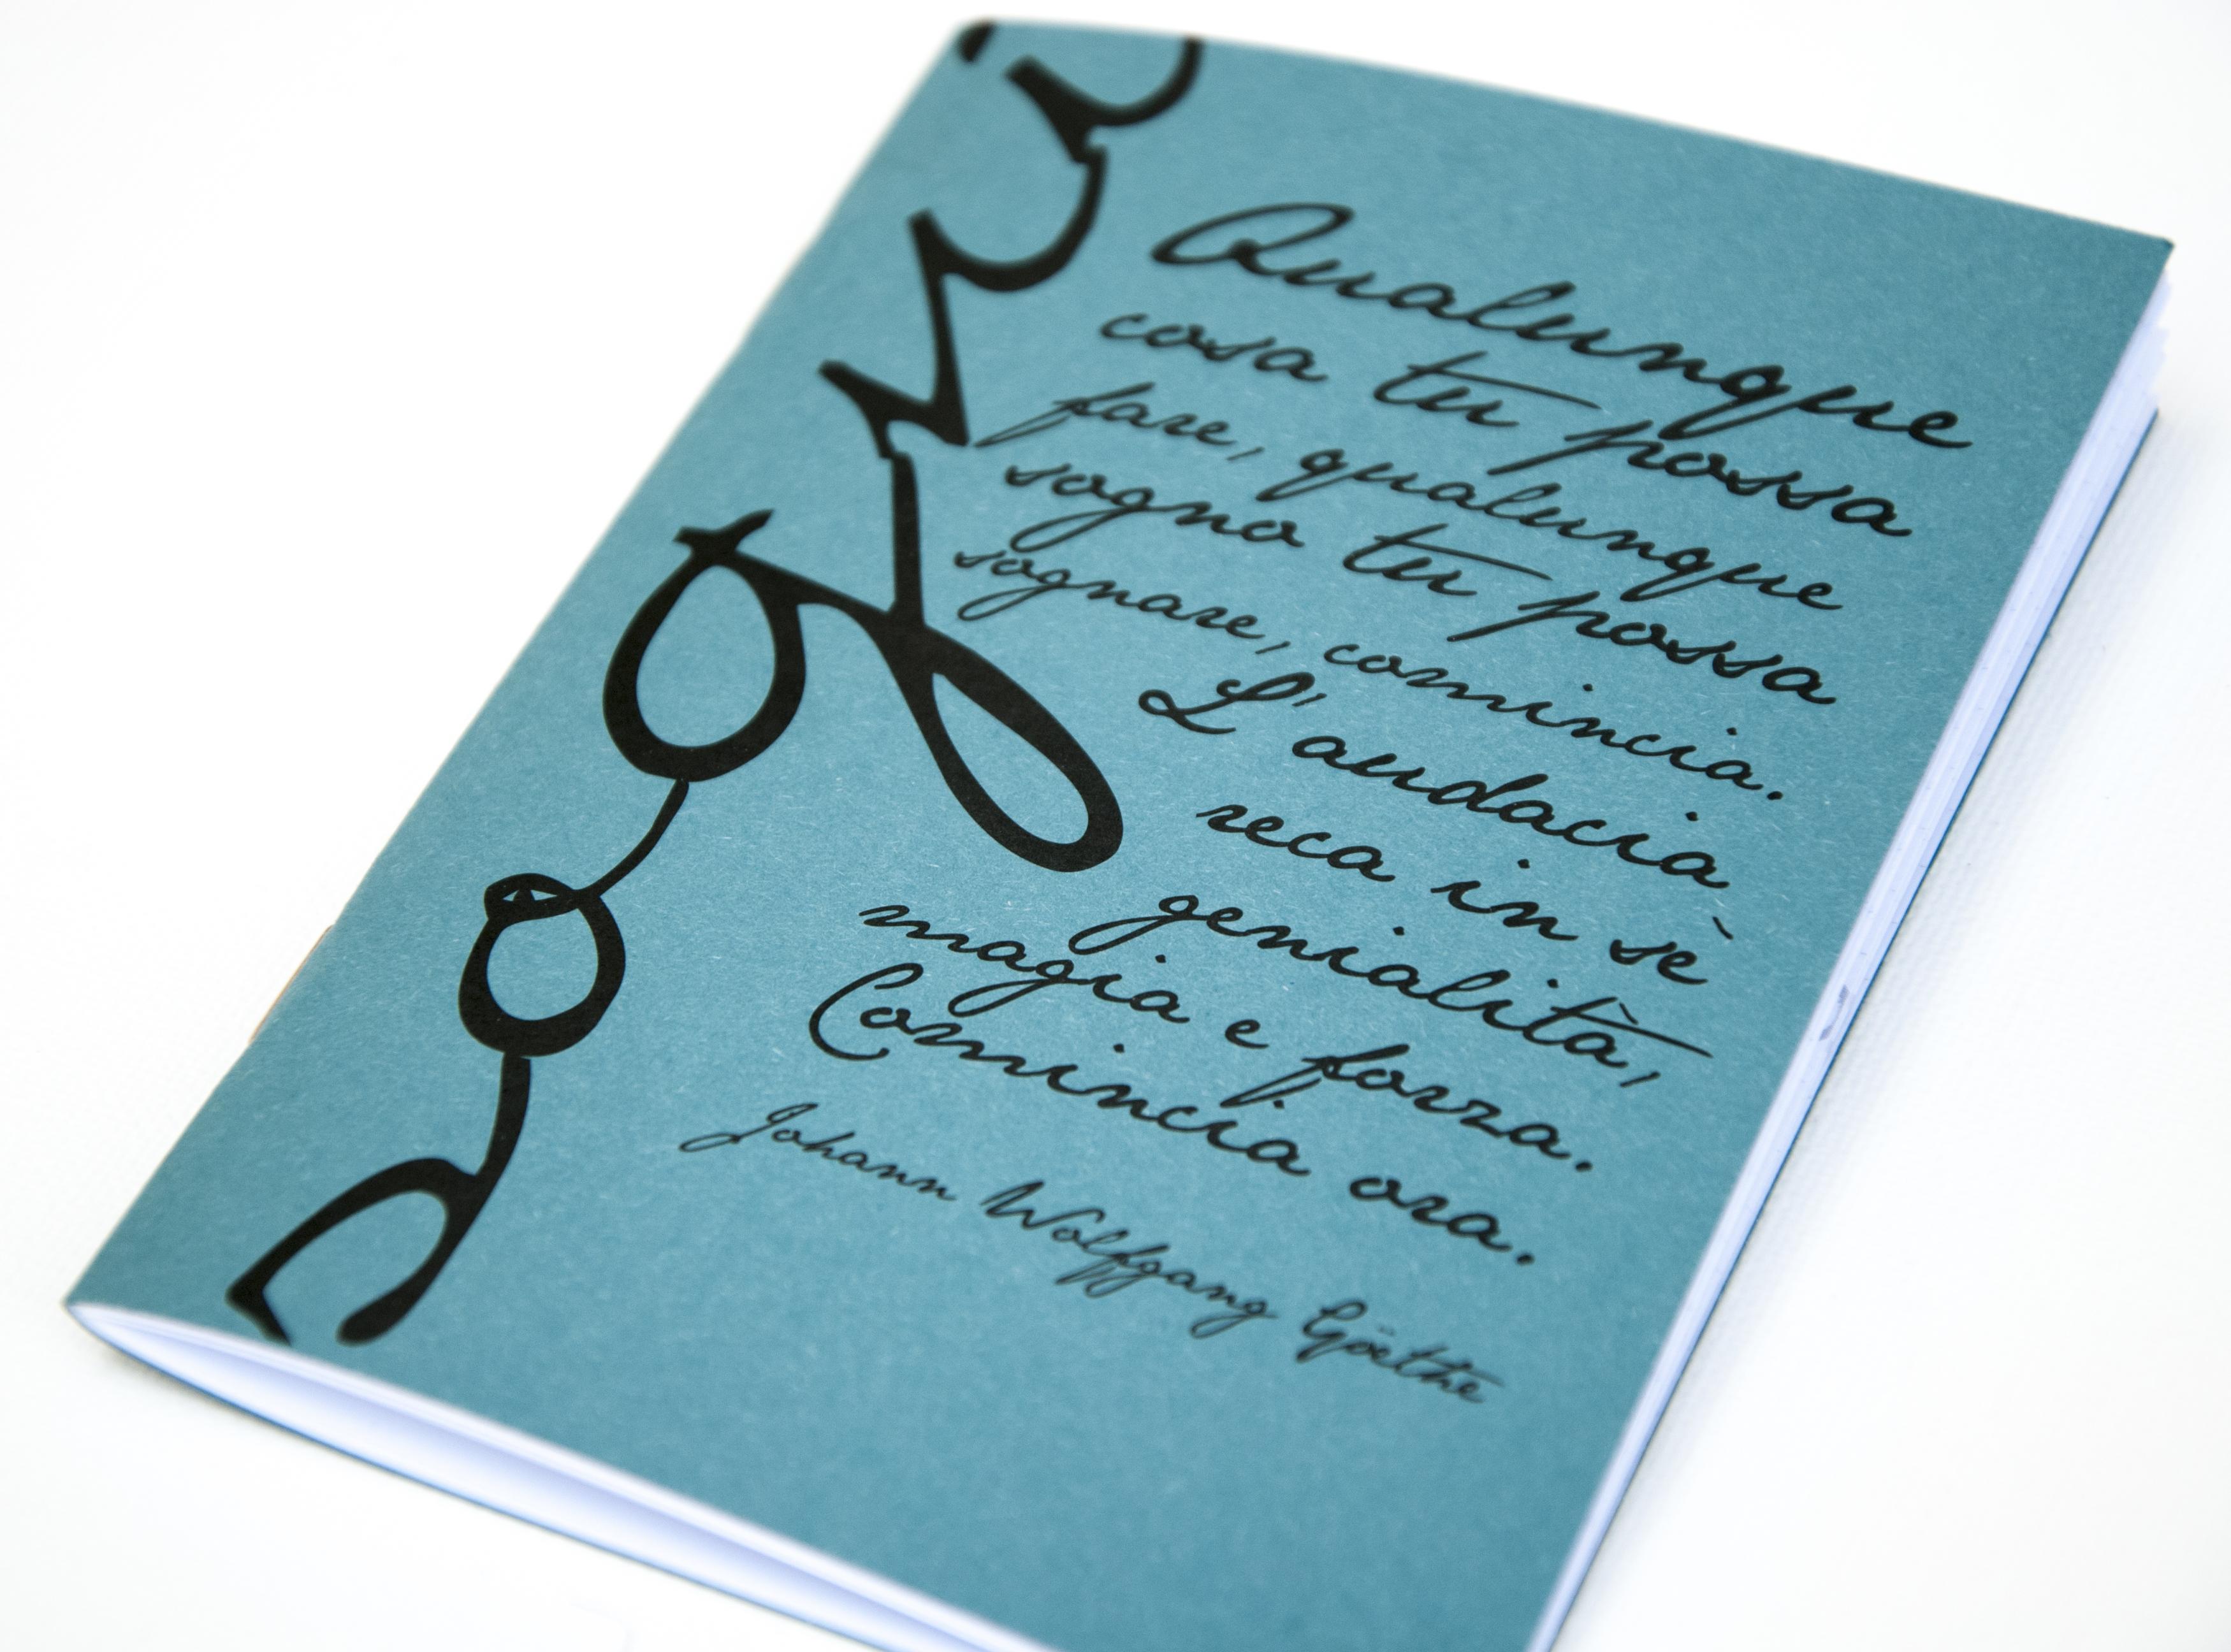 sogni
Qualunque
cosa tu possa
fare, qualunque
sogno tu possa
sognare, comincia.
L'audacia
reca in sè
genialità,
magia e forza.
Comincia ora.
Johann Wolfgang Göethe